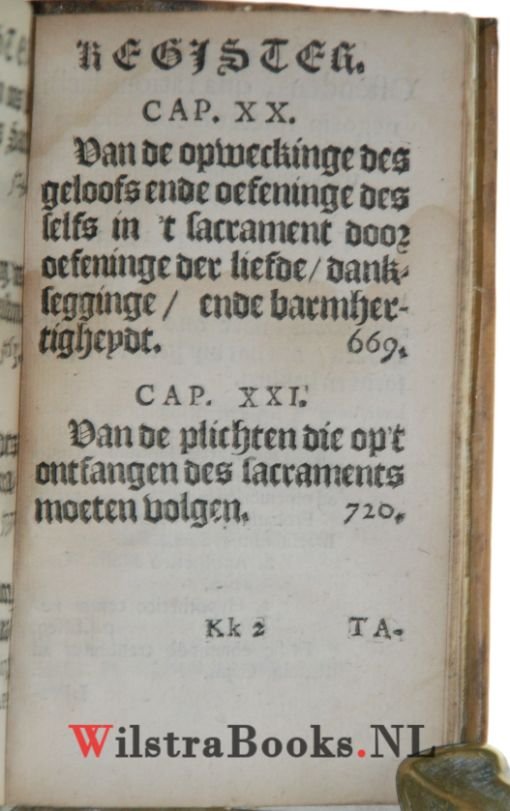 REGISTER.
CAP. XX.
Van de opweckinge des
geloofs ende oefeninge des
selfs in 't sacrament door
oefeninge der liefde / dank-
segginge / ende barmher-
tigheydt. 669.
CAP. XXI.
Van de plichten die op't
ontfangen des sacraments
moeten volgen. 720.
Kk 2 TA-
WilstraBooks.NL